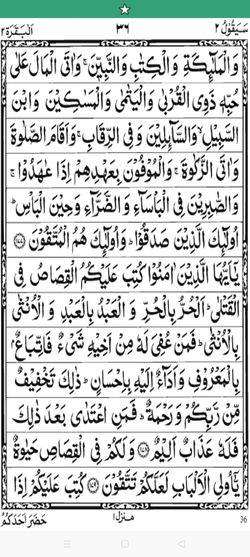 سَيَقُوْلُ ٢ ٣٦ اَلْبَقَرَة ٢
وَالْمَلٰٓئِكَةِ وَالْكِتٰبِ وَالنَّبِيّٖنَ ۚ وَاٰتَى الْمَالَ عَلٰى
حُبِّهٖ ذَوِى الْقُرْبٰى وَالْيَتٰمٰى وَالْمَسٰكِيْنَ وَابْنَ
السَّبِيْلِ ۙ وَالسَّآئِلِيْنَ وَفِى الرِّقَابِ ۚ وَاَقَامَ الصَّلٰوةَ
وَاٰتَى الزَّكٰوةَ ۚ وَالْمُوْفُوْنَ بِعَهْدِهِمْ اِذَا عٰهَدُوْا ۚ
وَالصّٰبِرِيْنَ فِى الْبَاْسَآءِ وَالضَّرَّآءِ وَحِيْنَ الْبَاْسِ ؕ
اُولٰٓئِكَ الَّذِيْنَ صَدَقُوْا ؕ وَاُولٰٓئِكَ هُمُ الْمُتَّقُوْنَ ﴿١٧٧﴾
يٰٓاَيُّهَا الَّذِيْنَ اٰمَنُوْا كُتِبَ عَلَيْكُمُ الْقِصَاصُ فِى
الْقَتْلٰى ؕ اَلْحُرُّ بِالْحُرِّ وَ الْعَبْدُ بِالْعَبْدِ وَ الْاُنْثٰى
بِالْاُنْثٰى ؕ فَمَنْ عُفِىَ لَهٗ مِنْ اَخِيْهِ شَىْءٌ فَاتِّبَاعٌۢ
بِالْمَعْرُوْفِ وَاَدَآءٌ اِلَيْهِ بِاِحْسَانٍ ؕ ذٰلِكَ تَخْفِيْفٌ
مِّنْ رَّبِّكُمْ وَرَحْمَةٌ ؕ فَمَنِ اعْتَدٰى بَعْدَ ذٰلِكَ
فَلَهٗ عَذَابٌ اَلِيْمٌ ﴿١٧٨﴾ وَلَكُمْ فِى الْقِصَاصِ حَيٰوةٌ
يّٰٓاُولِى الْاَلْبَابِ لَعَلَّكُمْ تَتَّقُوْنَ ﴿١٧٩﴾ كُتِبَ عَلَيْكُمْ اِذَا
حَضَرَ اَحَدَكُمُ منزل ١ 36